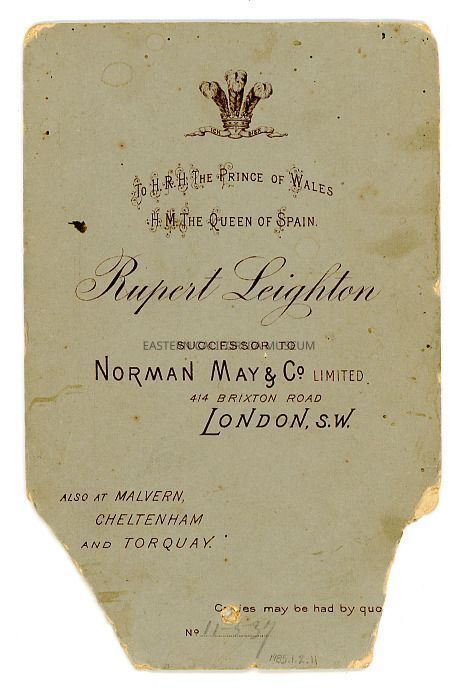 ICH DIEN
To H.R.H. The Prince of Wales
H.M. The Queen of Spain.
Rupert Leighton
SUCCESSOR TO
EASTERN CALIFORNIA MUSEUM
NORMAN MAY & Co LIMITED.
414 BRIXTON ROAD
LONDON, S.W.
ALSO AT MALVERN,
CHELTENHAM
AND TORQUAY.
Copies may be had by quo
No 11-5-37
1985.1.2.11